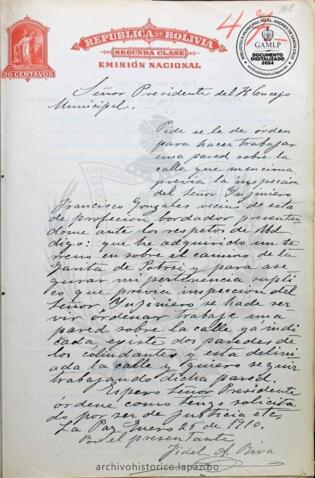 168
REPUBLICA DE BOLIVIA
SEGUNDA CLASE
EMISIÓN NACIONAL
20 CENTAVOS
GAMLP
DOCUMENTO
DIGITALIZADO
2024
Señor Presidente del H. Concejo
Municipal.
Pide se le dé órden
para hacer trabajar
una pared sobre la
calle que menciona
prévia la inspección
del Señor Ingeniero
Francisco Gonzales vecino de esta
de profeción bordador presentan
dome ante los respetos de Ud
digo: que he adquirido un te
rreno en sobre el camino de la
Garita de Potosí y para ase
gurar mi pertenencia
que prévia inspección del
Señor Ingeniero se ha de ser
vir órdenar trabaje una
pared sobre la calle ya indi
cada, existe dos paredes de
los colindantes y esta delini
ada la calle y quiero seguir
trabajando dicha pared.
Espero Señor Presidente
órdene como tengo solicita
do por ser de justicia etc.
La Paz Enero 26 de 1910.
Por el presentante
Fidel A. Riva
archivohistorico.lapaz.bo